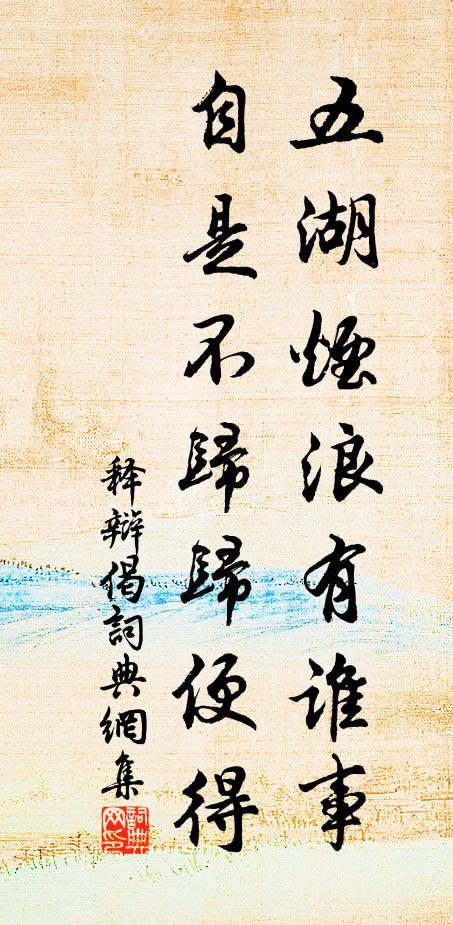 五湖煙浪有誰事
自是不歸歸便得
释辯偈詞典網集
詞典
网印